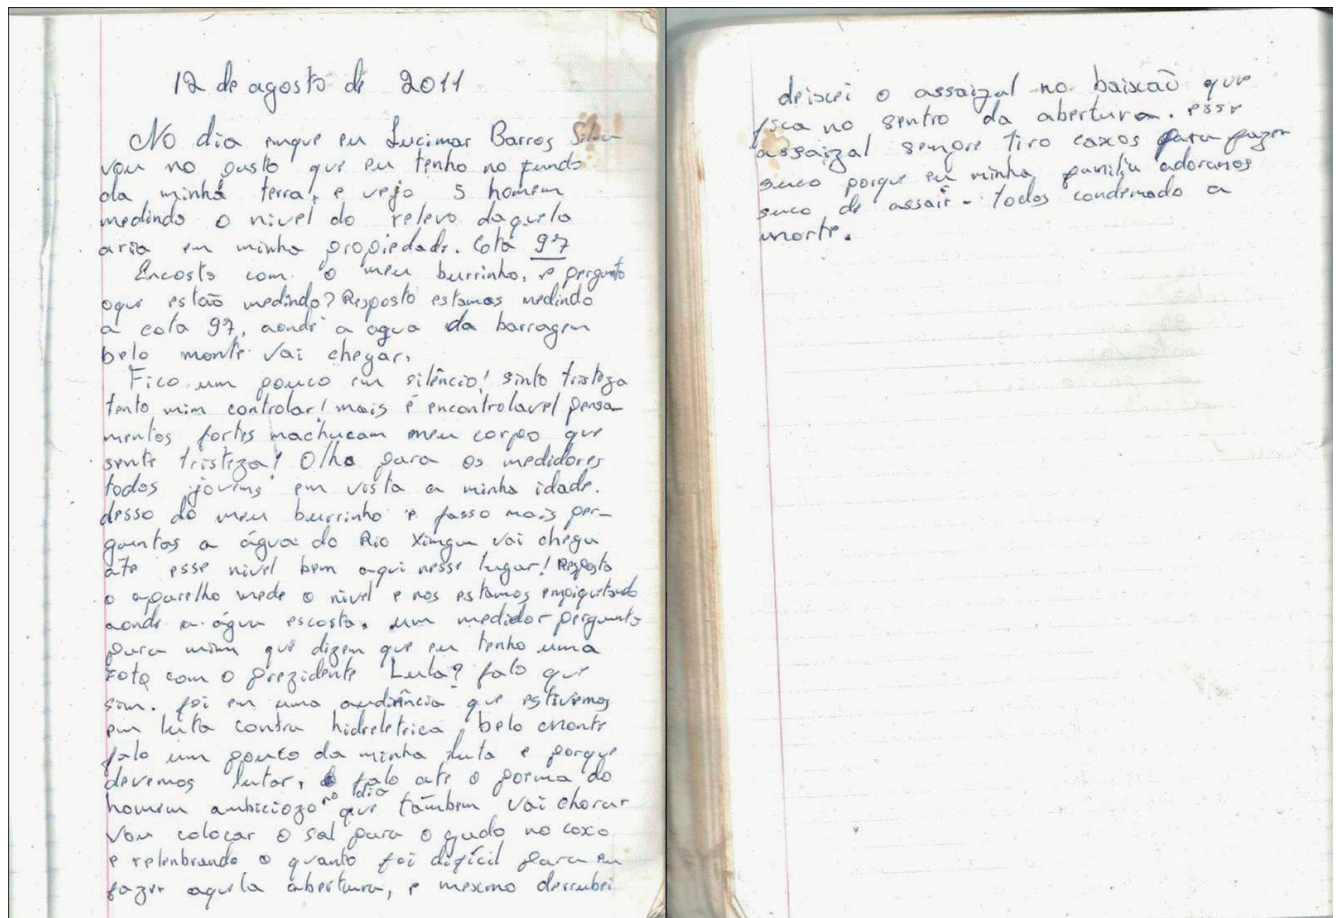 12 de agosto de 2011
No dia enque eu Lucimar Barros Silva
vou no pasto que eu tenho no fundo
da minha terra, e vejo 5 homem
medindo o nivel do relevo daquela
aria em minha propiedade. Cota 97
Encosto com o meu burrinho, e pergunto
oque estão medindo? Resposto estamos medindo
a cota 97, aonde a agua da barragem
belo monte vai chegar.
Fico um pouco em silêncio! sinto tristeza
tento mim controlar! mais é encontrolavel pensa
mentos fortes machucam meu corpo que
sente tristeza! Olho para os medidores
todos jovens em vista a minha idade.
desso do meu burrinho e fasso mais per-
guntas a água do Rio Xingu vai chega
ate esse nivel bem aqui nesse lugar! Resposta
o aparelho mede o nivel e nos estamos empiquetando
aonde a água escosta. um medidor pergunto
para mim que dizem que eu tenho uma
Foto com o prezidente Lula? falo que
sim. foi em uma audiência que estivemos
em luta contra hidreletrica belo monte
falo um pouco da minha luta e porque
devemos lutar, falo ate o poema do
homem ambiciozo no dia que tãmbem vai chorar
vou colocar o sal para o gado no coxo
e relenbrando o quanto foi difícil para eu
fazer aquela abertura, e mesmo derrubei
deixei o assaizal no baixaõ que
fica no sentro da abertura. esse
assaizal sempre tiro caxos para fazer
suco porque eu minha familia adoramos
suco de assaí - todos condemado a
morte.